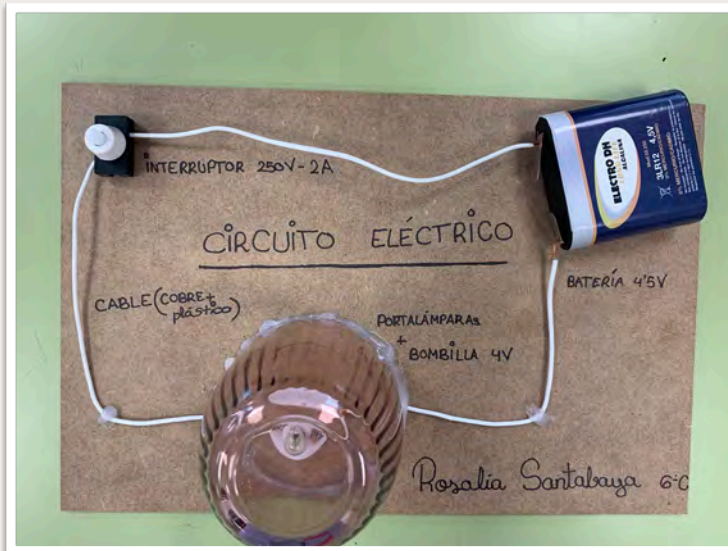 INTERRUPTOR 250V-2A
ELECTRO DH
ALCALINA
3LR12 4,5V
CIRCUITO ELÉCTRICO
BATERÍA 4'5V
CABLE (COBRE+
plástico)
PORTALÁMPARAS
+
BOMBILLA 4V
Rosalía Santabaya 6ºC